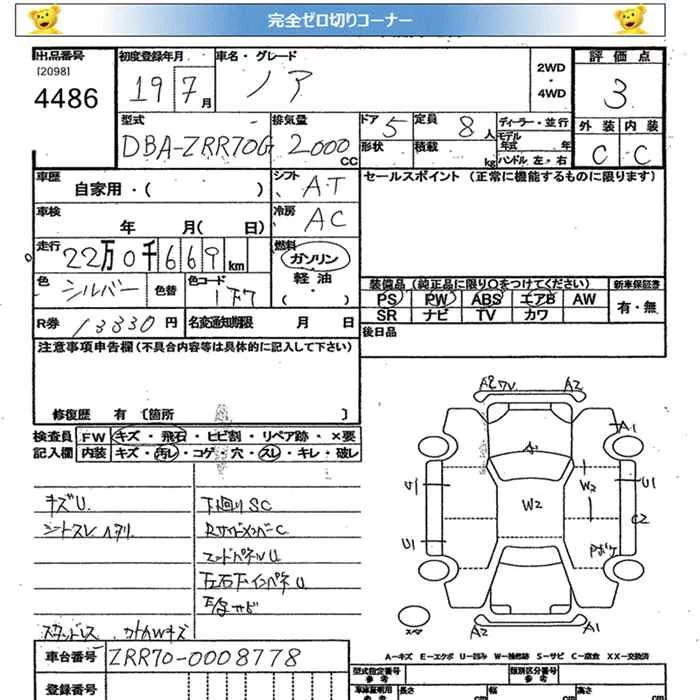 完全ゼロ切りコーナー
出品番号 初度登録年月 車名・グレード 2WD・4WD 評価点
[2098]
4486 19 7月 ノア 3
型式 排気量 ドア 5 定員 8人 ディーラー・並行 外装 内装
DBA-ZRR70G 2000CC 形状 積載 kg モデル年式 年 C C
ハンドル 左・右
車歴 自家用・( ) シフト AT セールスポイント (正常に機能するものに限ります)
車検 年 月( 日) 冷房 AC
走行 22万0千669km 燃料 ガソリン・軽油・( )
色 シルバー 色替 色コード 1F7 装備品 (純正品に限り○をつけてください) 新車保証書
PS PW ABS エアB AW 有・無
SR ナビ TV カワ
R券 13330円 名変通知期限 月 日 後日品
注意事項申告欄 (不具合内容等は具体的に記入して下さい)
修復歴 有 [箇所 ]
検査員 FW キズ・飛石・ヒビ割・リペア跡・×要
記入欄 内装 キズ・汚レ・コゲ・穴・スレ・キレ・破レ
キズU 下廻りSC
シートスレ ヘタリ RサイドメンバーC
エンドパネルU
左右下インパネU
スタッドレス
A2 A2
A1
A
U1 W2 U1
W2 C2
U1
スペア A2 A1
A-キズ E-エクボ U-凹み W-補修跡 S-サビ C-腐食 XX-交換済
車台番号 ZRR70-0008778
型式指定番号 参考 類別区分番号 参考
登録番号 車庫証明用 参考 長さ cm 幅 cm 高さ cm